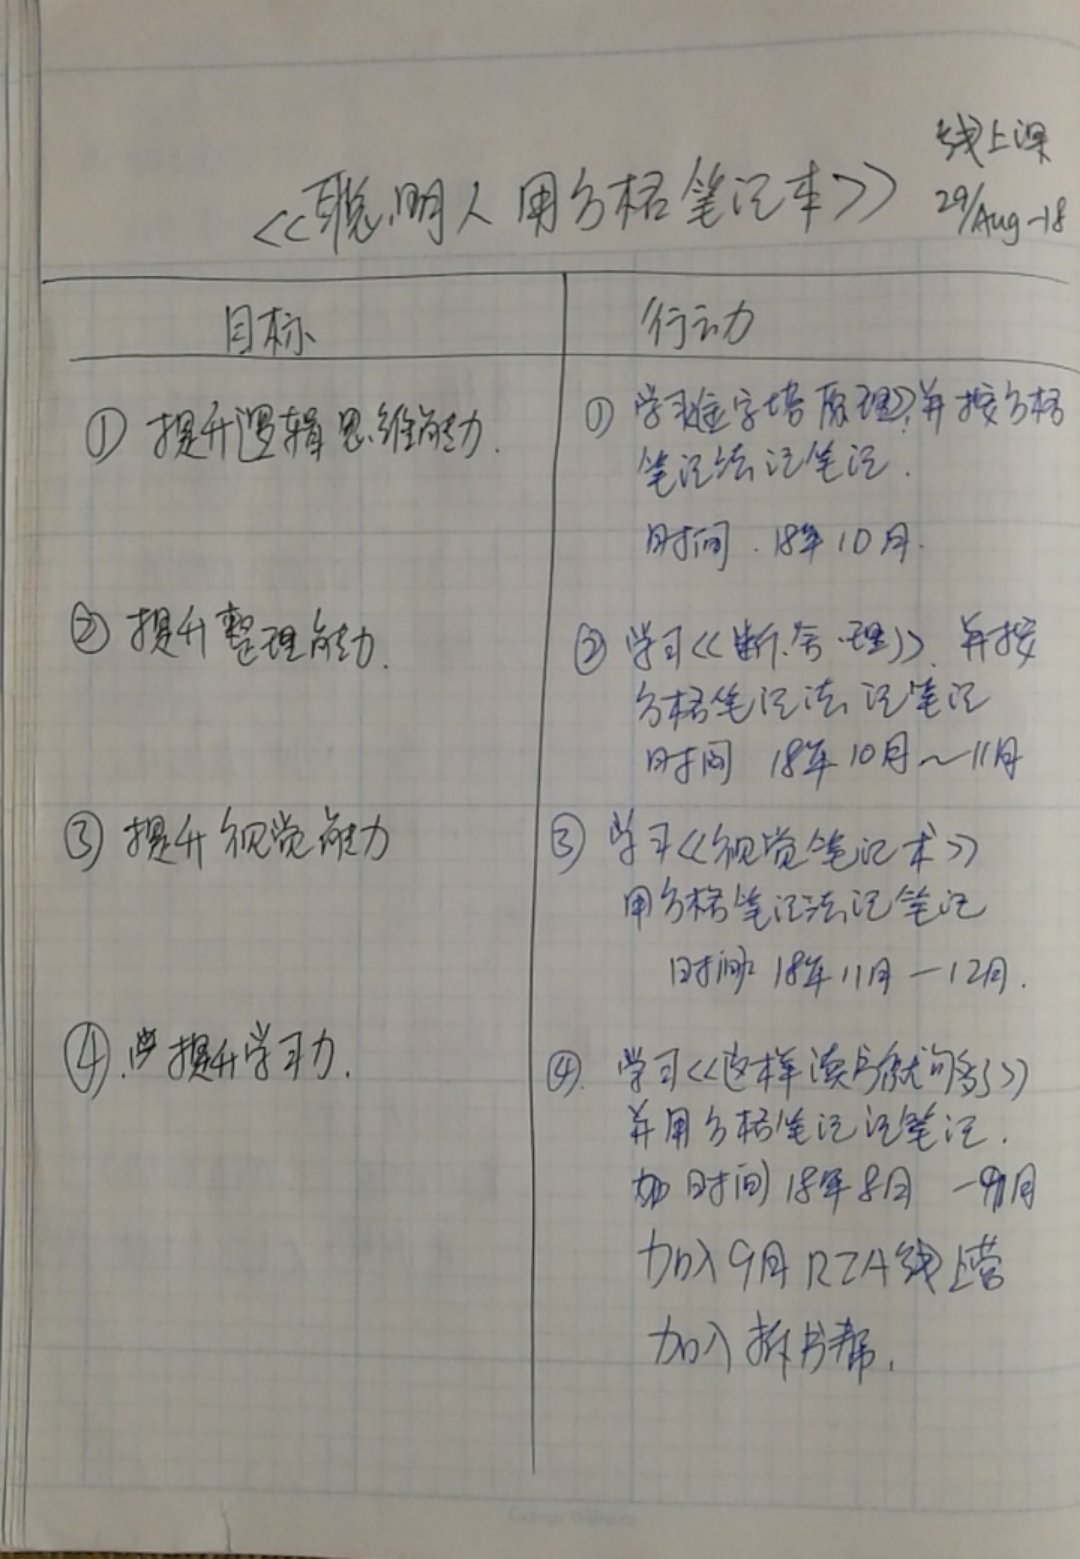 线上课
《聪明人用方格笔记本》
29/Aug-18
目标
行动
① 提升逻辑思维能力.
① 学习金字塔原理》并按方格
笔记法记笔记.
时间. 18年10月.
② 提升整理能力.
② 学习《断.舍.理》. 并按
方格笔记法记笔记
时间 18年10月~11月
③ 提升视觉能力
③ 学习《视觉笔记术》
用方格笔记法记笔记
时间 18年11月-12月.
④. 提升学习力.
④. 学习《这样读书就够了》
并用方格笔记记笔记.
时间 18年8月-9月
加入9月RIA线上营
加入拆书帮.